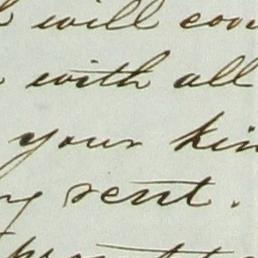 will con
with all
your kin
ng sent.